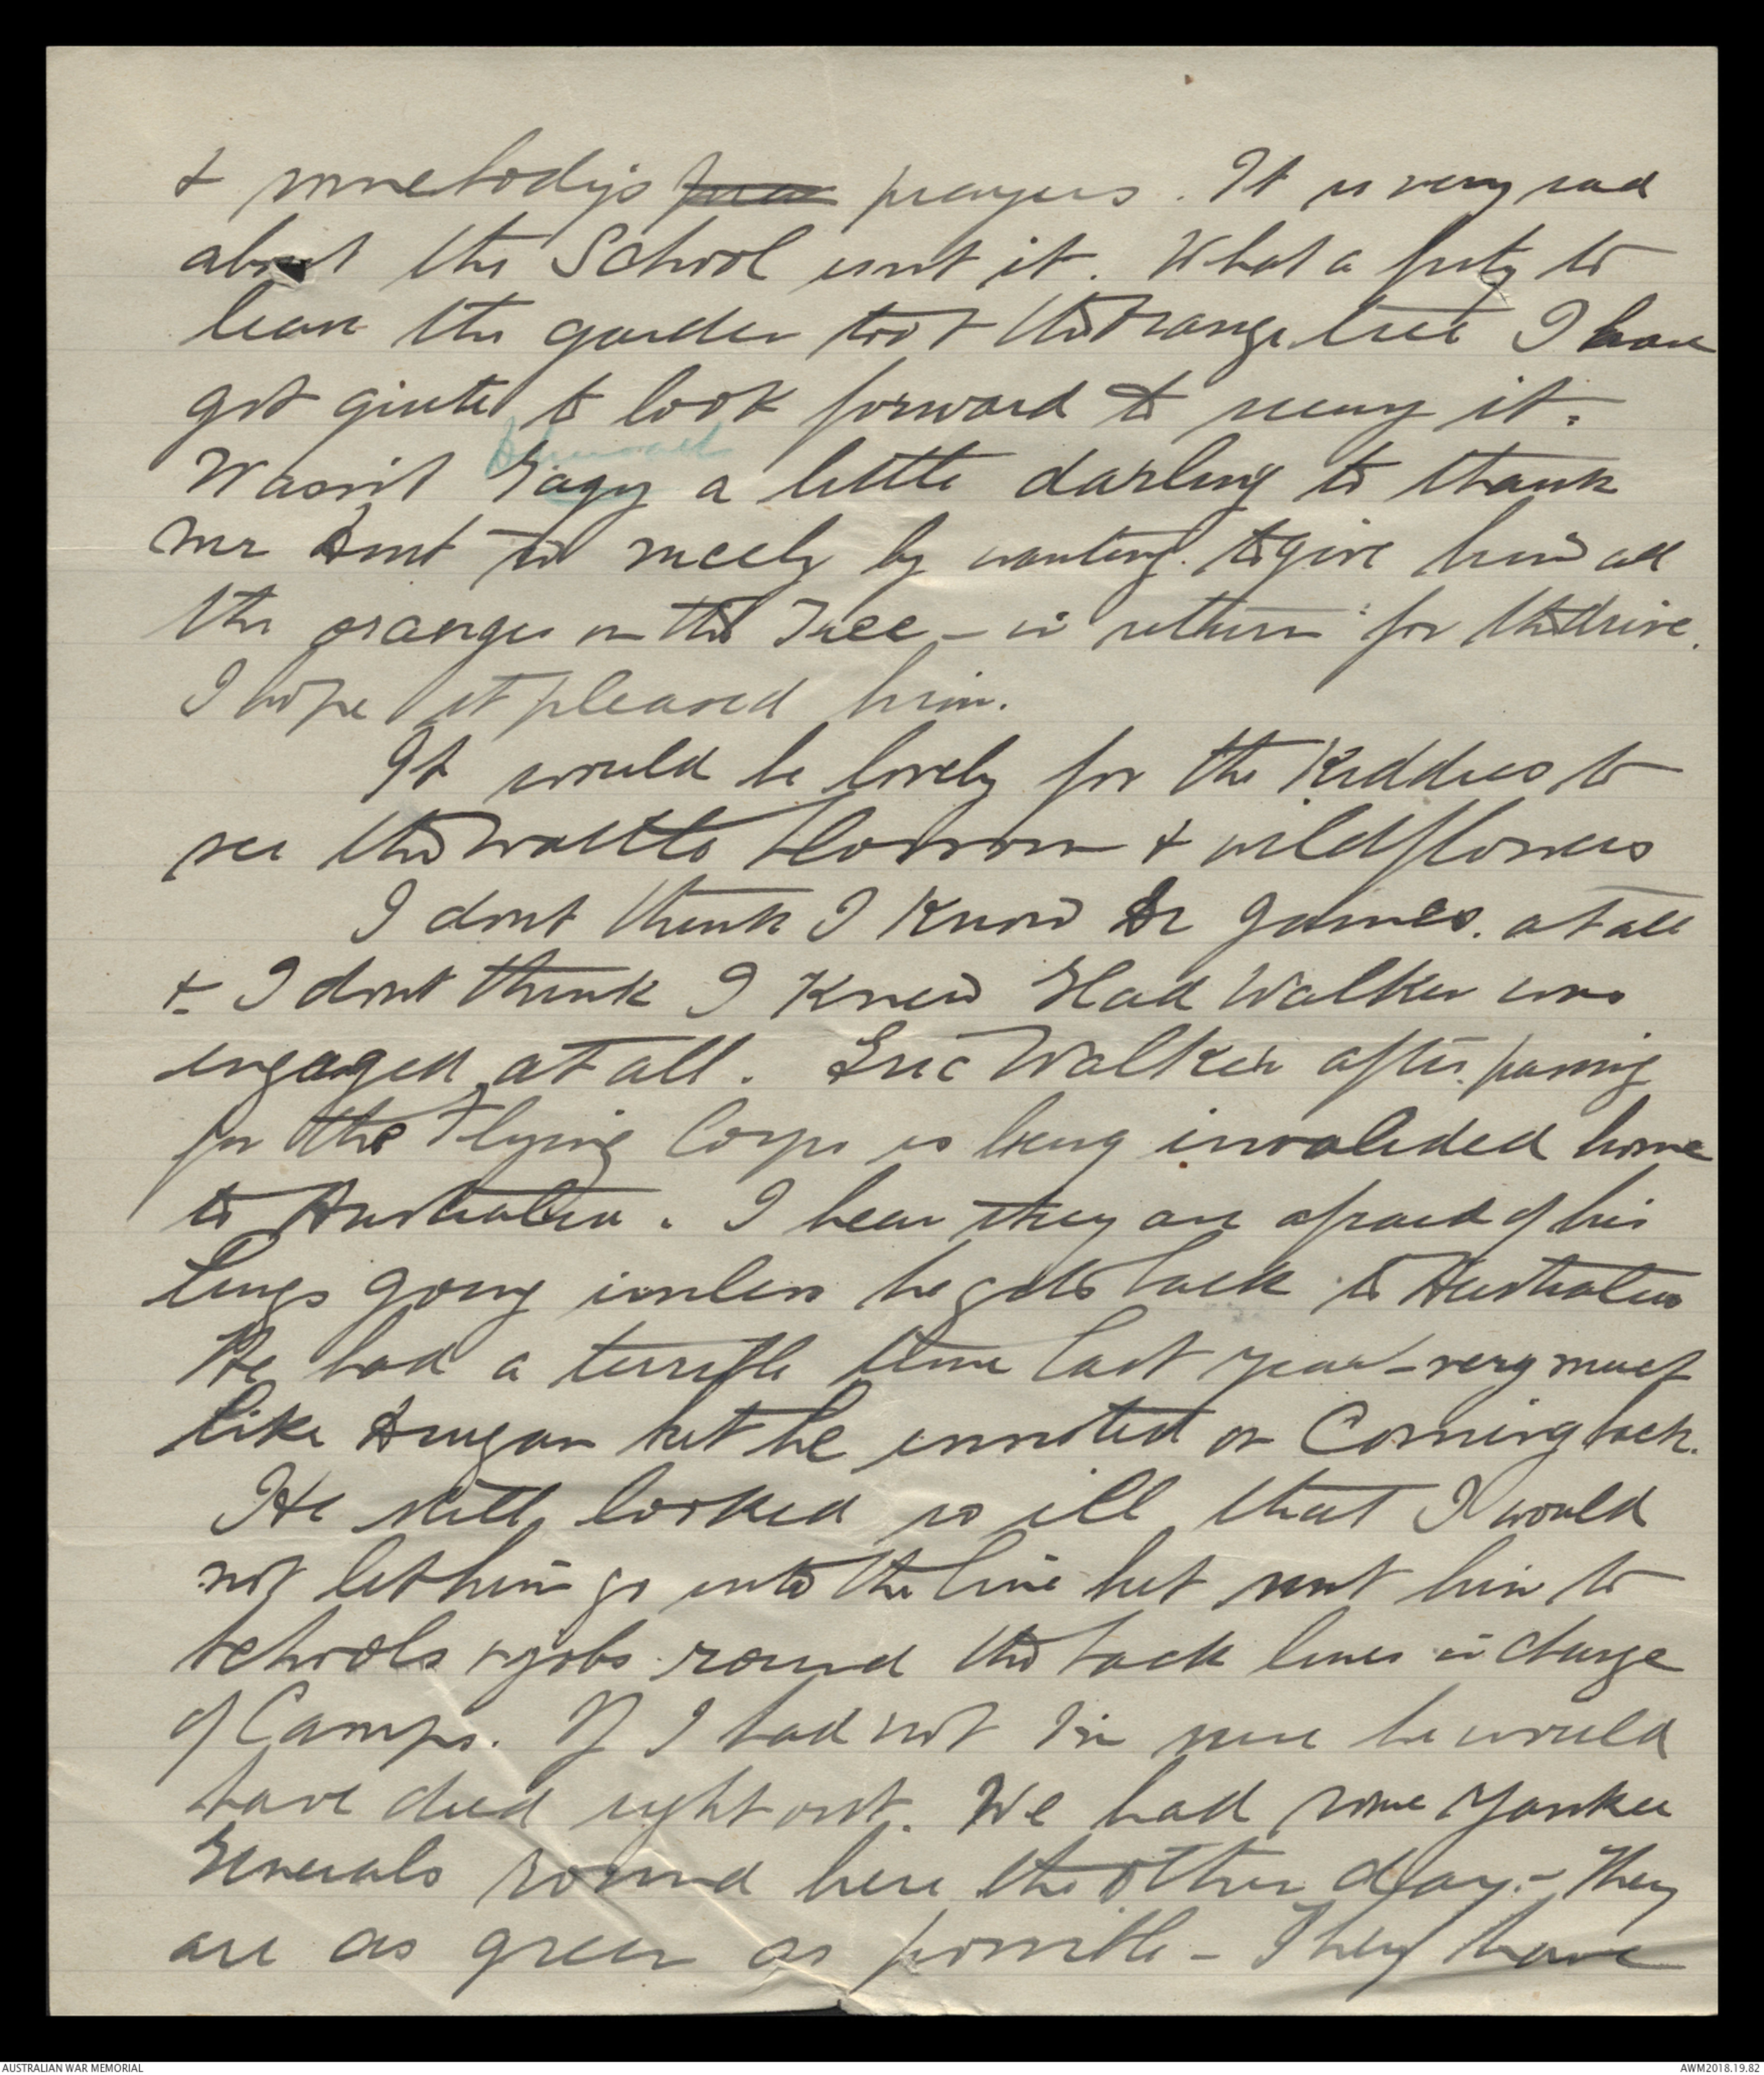 & somebody's prayers. It is very sad
about the School isnt it. What a pity to
leave the garden too & the orange tree I have
got quite to look forward to seeing it.
Wasn't a little darling to thank
Mr so nicely by wanting to give him all
the oranges on the Tree – in return for the drive.
I hope it pleased him.
It would be lovely for the Kiddies to
see the wattle blossom & wildflowers
I dont think I know Dr James. at all
& I dont think I knew Walker was
engaged at all. Eric Walker after passing
for the Flying Corps is being invalided home
to Australia. I hear they are afraid of his
lungs going unless he gets back to Australia
He had a terrible time last year – very much
like but he insisted on Coming back.
He still looked so ill that I would
not let him go into the line but sent him to
schools & jobs round the back lines in charge
of Camps. If I had not I'm sure he would
have died right out. We had some Yankee
Generals round here the other day – They
are as green as possible – They have
AUSTRALIAN WAR MEMORIAL
AWM2018.19.82